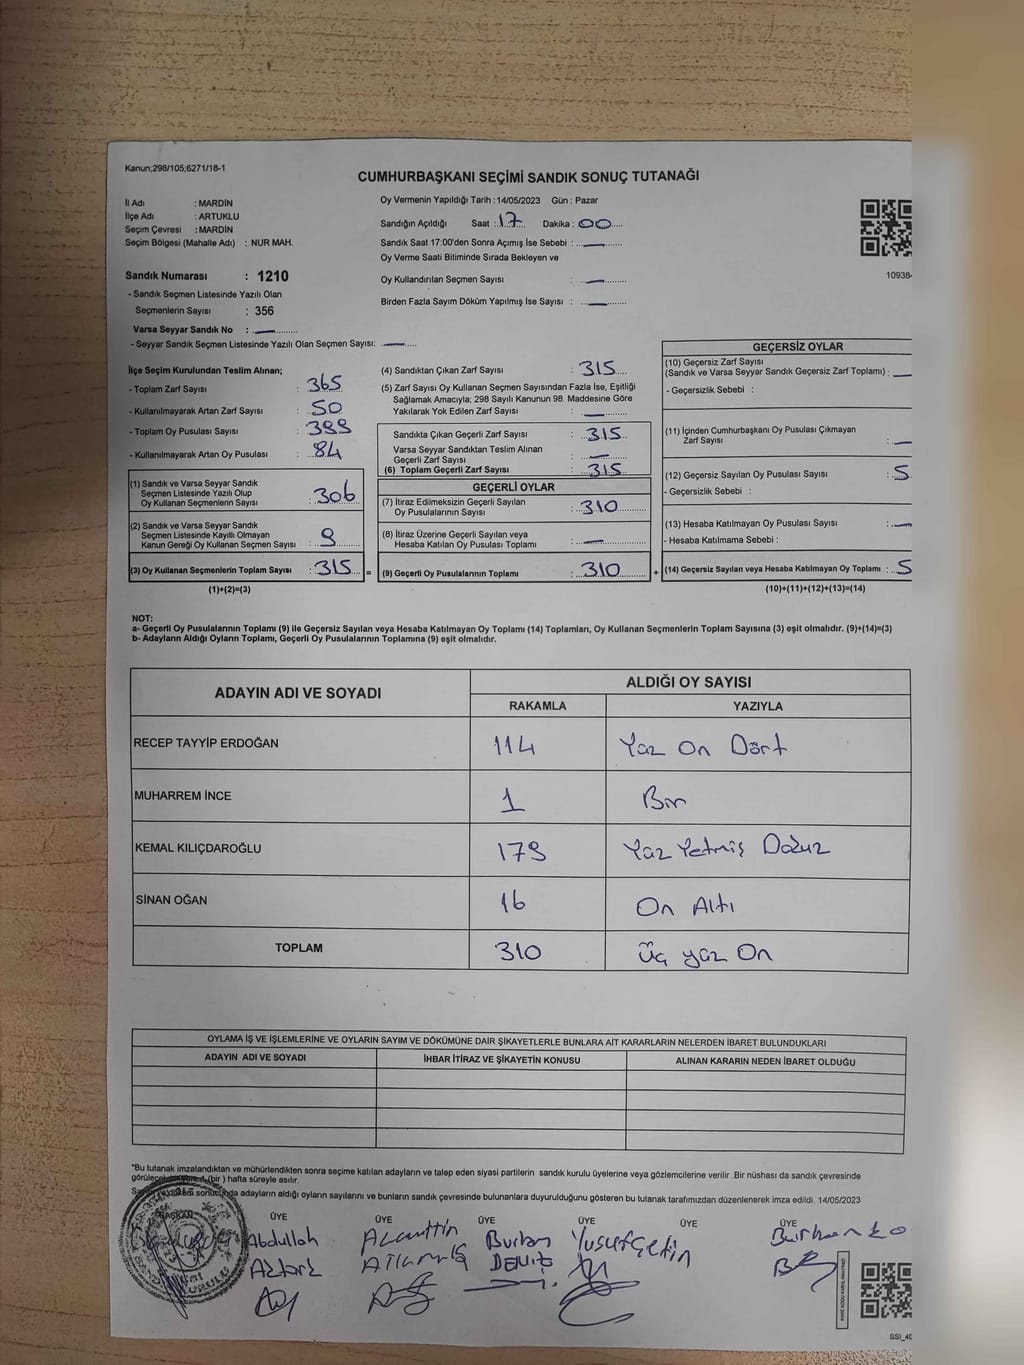 Kanun;298/105;6271/18-1
CUMHURBAŞKANI SEÇİMİ SANDIK SONUÇ TUTANAĞI
İl Adı : MARDİN
İlçe Adı : ARTUKLU
Seçim Çevresi : MARDİN
Seçim Bölgesi (Mahalle Adı) : NUR MAH.
Sandık Numarası : 1210
- Sandık Seçmen Listesinde Yazılı Olan
Seçmenlerin Sayısı : 356
Varsa Seyyar Sandık No :
- Seyyar Sandık Seçmen Listesinde Yazılı Olan Seçmen Sayısı:
Oy Vermenin Yapıldığı Tarih : 14/05/2023 Gün : Pazar
Sandığın Açıldığı Saat : 17 Dakika : 00
Sandık Saat 17:00'den Sonra Açımış İse Sebebi :
Oy Verme Saati Bitiminde Sırada Bekleyen ve
Oy Kullandırılan Seçmen Sayısı :
Birden Fazla Sayım Döküm Yapılmış İse Sayısı :
10938
İlçe Seçim Kurulundan Teslim Alınan;
- Toplam Zarf Sayısı : 365
- Kullanılmayarak Artan Zarf Sayısı : 50
- Toplam Oy Pusulası Sayısı : 399
- Kullanılmayarak Artan Oy Pusulası : 84
(1) Sandık ve Varsa Seyyar Sandık
Seçmen Listesinde Yazılı Olup
Oy Kullanan Seçmenlerin Sayısı : 306
(2) Sandık ve Varsa Seyyar Sandık
Seçmen Listesinde Kayıtlı Olmayan
Kanun Gereği Oy Kullanan Seçmen Sayısı : 9
(3) Oy Kullanan Seçmenlerin Toplam Sayısı : 315 =
(1)+(2)=(3)
(4) Sandıktan Çıkan Zarf Sayısı : 315
(5) Zarf Sayısı Oy Kullanan Seçmen Sayısından Fazla İse, Eşitliği
Sağlamak Amacıyla; 298 Sayılı Kanunun 98. Maddesine Göre
Yakılarak Yok Edilen Zarf Sayısı :
Sandıkta Çıkan Geçerli Zarf Sayısı : 315
Varsa Seyyar Sandıktan Teslim Alınan
Geçerli Zarf Sayısı :
(6) Toplam Geçerli Zarf Sayısı : 315
GEÇERLİ OYLAR
(7) İtiraz Edilmeksizin Geçerli Sayılan
Oy Pusulalarının Sayısı : 310
(8) İtiraz Üzerine Geçerli Sayılan veya
Hesaba Katılan Oy Pusulası Toplamı :
(9) Geçerli Oy Pusulalarının Toplamı : 310 +
GEÇERSİZ OYLAR
(10) Geçersiz Zarf Sayısı
(Sandık ve Varsa Seyyar Sandık Geçersiz Zarf Toplamı) :
- Geçersizlik Sebebi :
(11) İçinden Cumhurbaşkanı Oy Pusulası Çıkmayan
Zarf Sayısı :
(12) Geçersiz Sayılan Oy Pusulası Sayısı : 5
- Geçersizlik Sebebi :
(13) Hesaba Katılmayan Oy Pusulası Sayısı :
- Hesaba Katılmama Sebebi :
(14) Geçersiz Sayılan veya Hesaba Katılmayan Oy Toplamı : 5
(10)+(11)+(12)+(13)=(14)
NOT:
a- Geçerli Oy Pusulalarının Toplamı (9) ile Geçersiz Sayılan veya Hesaba Katılmayan Oy Toplamı (14) Toplamları, Oy Kullanan Seçmenlerin Toplam Sayısına (3) eşit olmalıdır. (9)+(14)=(3)
b- Adayların Aldığı Oyların Toplamı, Geçerli Oy Pusulalarının Toplamına (9) eşit olmalıdır.
ADAYIN ADI VE SOYADI
ALDIĞI OY SAYISI
RAKAMLA YAZIYLA
RECEP TAYYİP ERDOĞAN 114 Yüz On Dört
MUHARREM İNCE 1 Bir
KEMAL KILIÇDAROĞLU 179 Yüz Yetmiş Dokuz
SİNAN OĞAN 16 On Altı
TOPLAM 310 Üç yüz On
OYLAMA İŞ VE İŞLEMLERİNE VE OYLARIN SAYIM VE DÖKÜMÜNE DAİR ŞİKAYETLERLE BUNLARA AİT KARARLARIN NELERDEN İBARET BULUNDUKLARI
ADAYIN ADI VE SOYADI İHBAR İTİRAZ VE ŞİKAYETİN KONUSU ALINAN KARARIN NEDEN İBARET OLDUĞU
"Bu tutanak imzalandıktan ve mühürlendikten sonra seçime katılan adayların ve talep eden siyasi partilerin sandık kurulu üyelerine veya gözlemcilerine verilir .Bir nüshası da sandık çevresinde
(bir ) hafta süreyle asılır.
adayların aldığı oyların sayılarını ve bunların sandık çevresinde bulunanlara duyurulduğunu gösteren bu tutanak tarafımızdan düzenlenerek imza edildi. 14/05/2023
BAŞKAN ÜYE ÜYE ÜYE ÜYE ÜYE ÜYE
Abdullah
Burhan
DENİZ
Yusuf Çetin